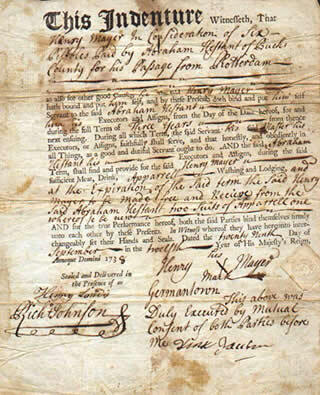 This Indenture Witnesseth, That
Henry Mayer In Consideration of Six
Pistoles Paid by Abraham Hestant of Bucks
County for his Passage from Rotterdam
as also for other good Causes he the said Henry Mayer
hath bound and put him self, and by these Presents doth bind and put him self
Servant to the said Abraham Hestant
Executors, and Assigns, from the Day of the Date hereof, for and
during the full Term of Three Years
next ensuing. During all which Term, the said Servant his said
Executors, or Assigns, faithfully shall serve, and that honestly, and obediently in
all Things, as a good and dutiful Servant ought to do. AND the said Abraham
Hestant his Executors and Assigns, during the said
Term, shall find and provide for the said Henry Mayer
sufficient Meat, Drink, Apparel Washing and Lodging, and
at the Expiration of the Said term the said Henry
Mayer to be made free and Receive from the
Said Abraham Hestant two Suits of Apparrell one
whereof to be new.
AND for the true Performance hereof, both the said Parties bind themselves firmly
unto each other by these Presents. In Witness whereof they have hereunto inter-
changeably set their Hands and Seals. Dated the Day of
September in the twelfth Year of His Majesty's Reign,
Annoque Domini 1738
his
Henry Mayer
mark
Sealed and Delivered in
the Presence of us
Henry
Rich Johnson
Germantown
This above was
Duly Executed by Mutual
Consent of both Parties before
me